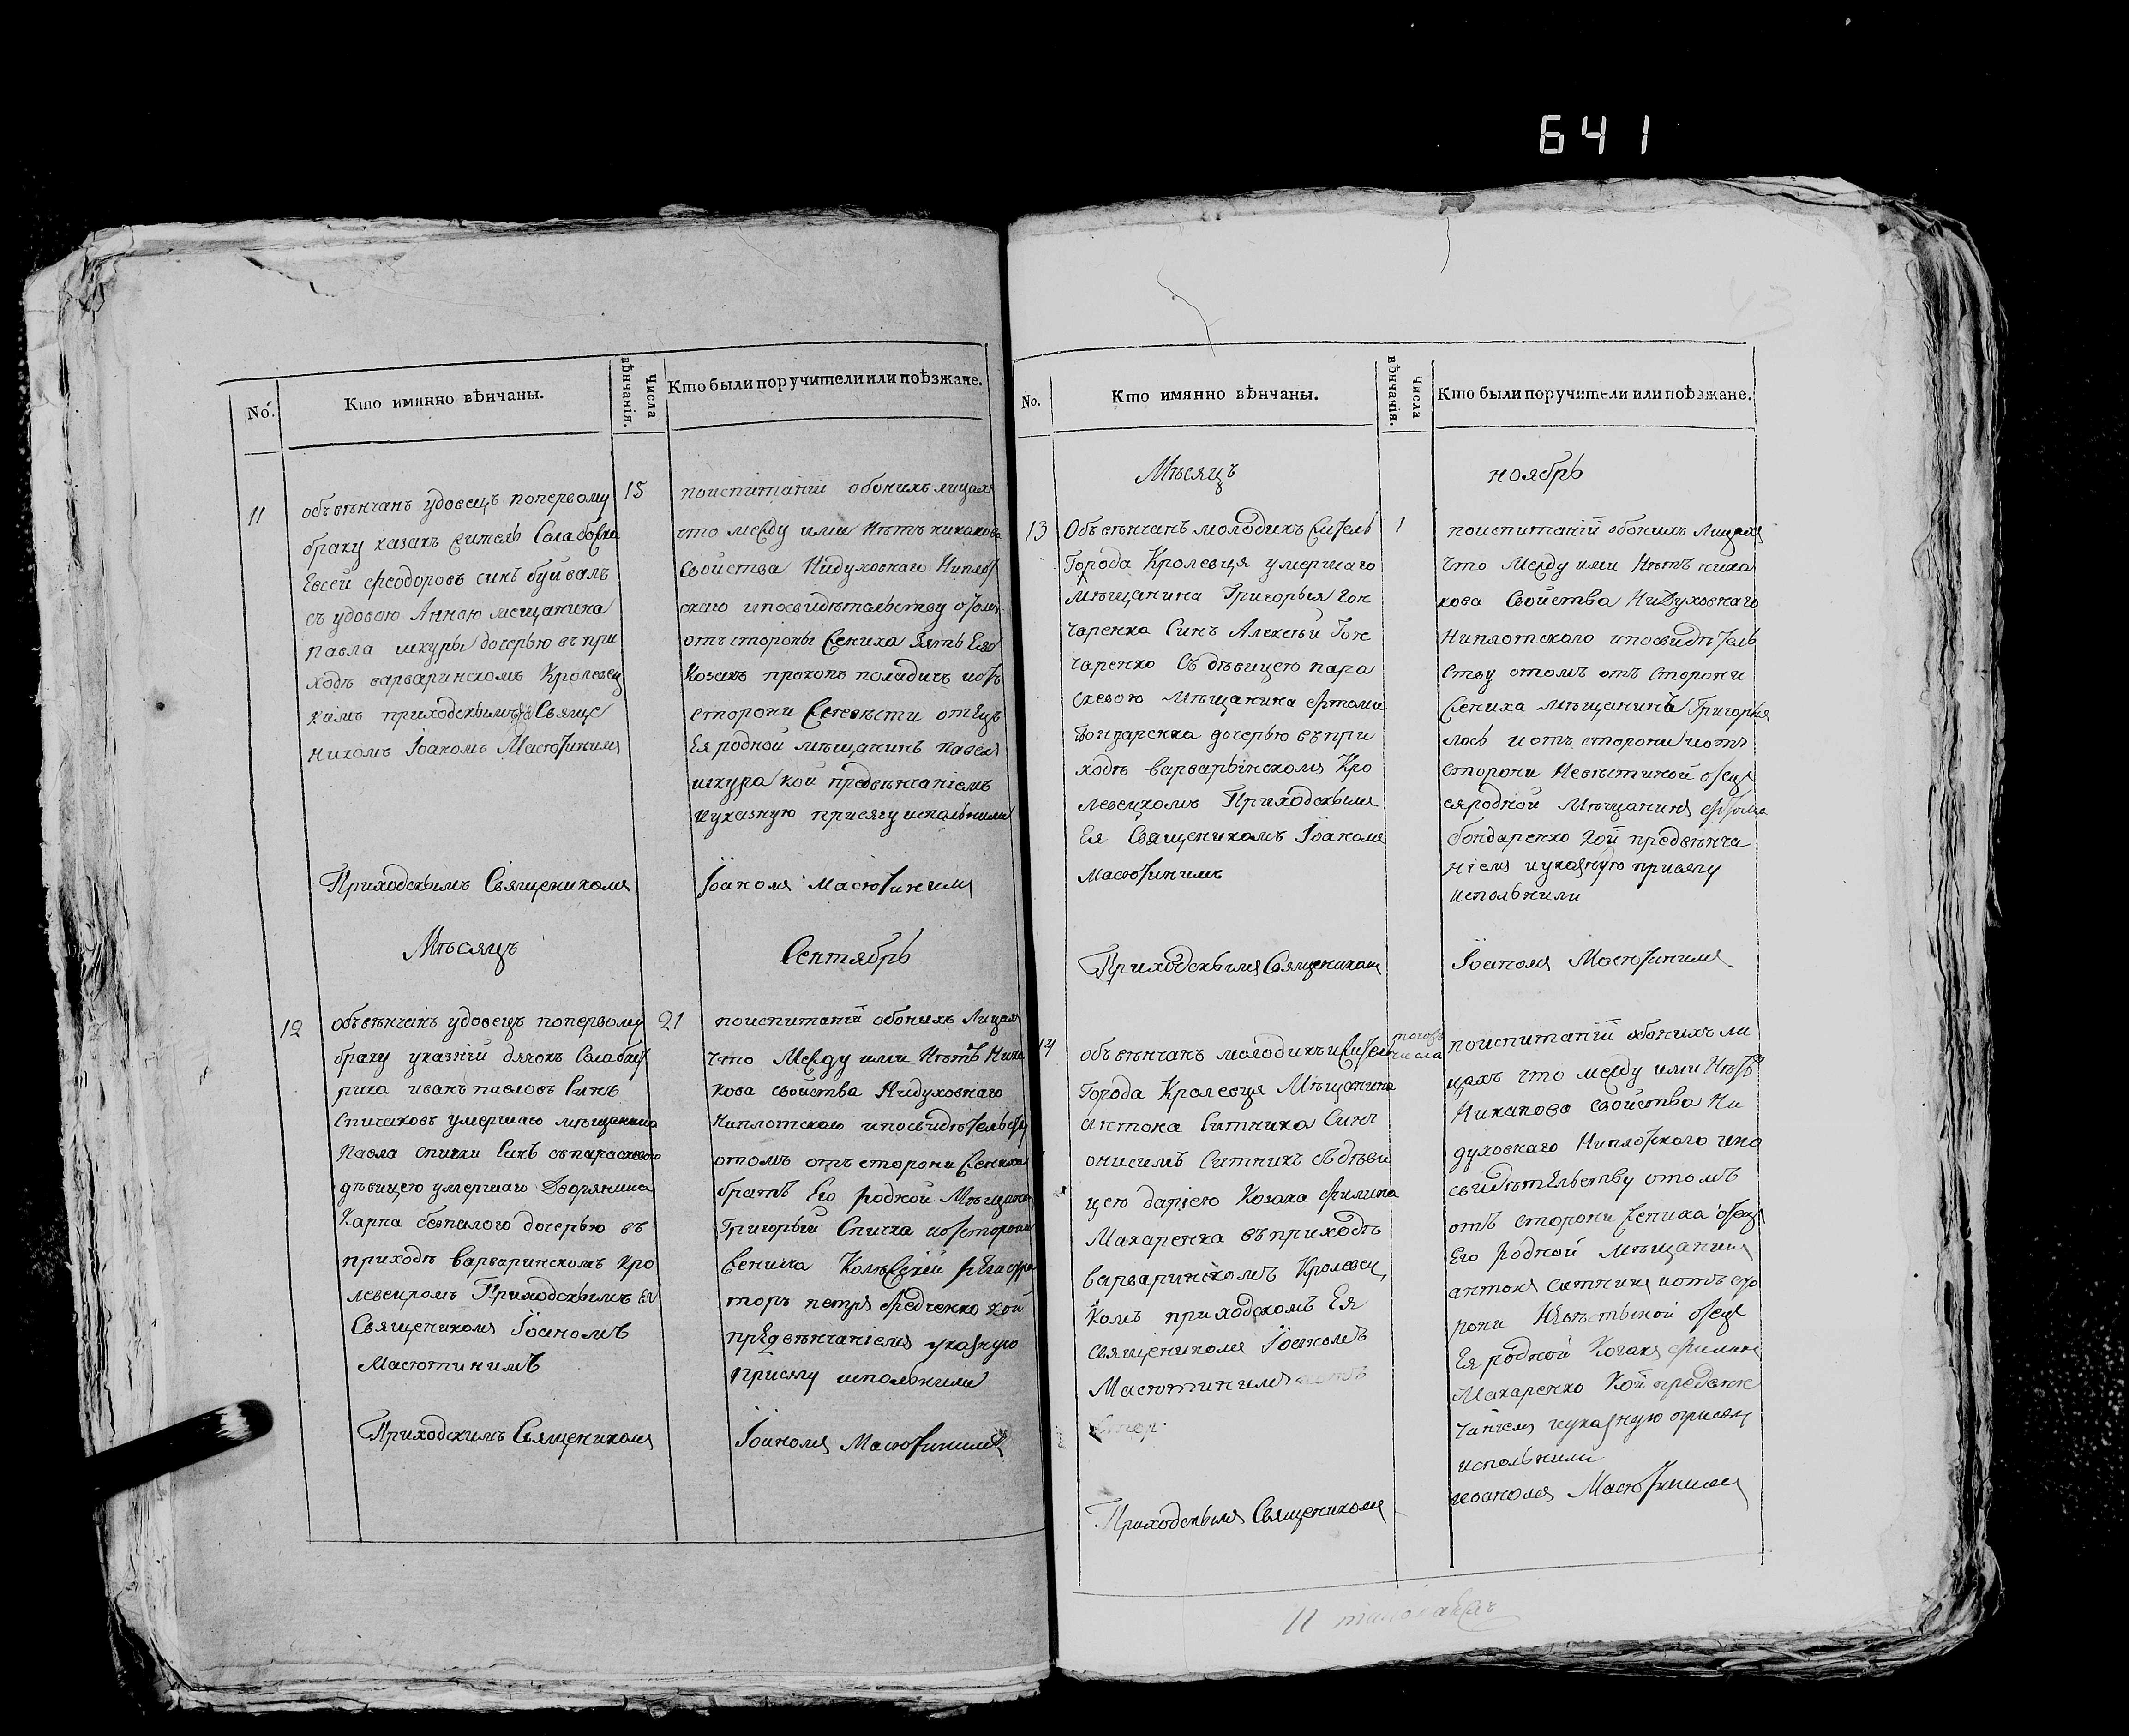 641
No.
Кто имянно вѣнчаны.
Числа вѣнчанія.
Кто были поручители или поѣзжане.
11
объвѣнчанъ удовецъ попервому
браку казакъ житель
Евсей Феодоровъ синъ буйвалъ
съ удовою Анною мещанина
Павла шкуры дочерью въ при
ходѣ варваринскомъ Кролевец
кимъ приходскимъ Свяще
никомъ Іоаномъ Масютинимъ
15
поиспитаніи обоихъ лицахъ
что между ими нѣтъ никакова
свойства Нидуховнаго Ниплот
скаго ипосвидѣтельству отомъ
отъ стороны жениха зять Его
Козакъ прокопъ поладичъ иотъ
сторони женевѣсти отецъ
Ея родной мѣщанинъ павелъ
шкура кои предвѣнчаніемъ
иуказную присягу исполънили
Приходскимъ Священикомъ
Іоаномъ Масютинимъ
Мѣсяцъ
Сентябрь
12
объвѣнчанъ удовецъ поперьвому
браку указній дячокъ
Иванъ павловъ Синъ
Спичаковъ умершаго мѣщанина
Павла спички Синъ съпараскевою
дѣвицею умершаго Дворянина
Карпа безпалого дочерью въ
приходѣ варваринскомъ Кро
левецкомъ Приходскимъ Ея
Священикомъ Іоаномъ
Масютинимъ
21
поиспитаніи обоихъ Лицахъ
что Между ими Нѣтъ Ника
кова свойства Нидуховнаго
Ниплотского ипосвидѣтельству
отомъ отъ сторони жениха
братъ Его родной Мѣщанинъ
Григорьій Спичка иотсторони
жениха Колѣжскій рЕгистра
торъ петръ Федченко кои
прЕдвѣнчаніемъ указную
присягу исполънили
Приходскимъ Священикомъ
Іоаномъ Масютинимъ
No.
Кто имянно вѣнчаны.
Числа вѣнчанія.
Кто были поручители или поѣзжане.
Мѣсяцъ
ноябрь
13
Объвѣнчанъ молодикъ житель
Города Кролевця умершаго
мѣщанина Григорья Гон
чаренка Синъ Алексѣй Гон
чаренко Съ дѣвицею пара
скевою мѣщанина Фоми
Бондаренка дочерью въпри
ходѣ варварьинскомъ Кро
левецкомъ Приходскимъ
Ея Священикомъ Іоаномъ
Масютинимъ
1
поиспитаніи обоихъ Лицахъ
что Между ими Нѣтъ ника
кова Свойства Нидуховнаго
Ниплотского ипосвидѣтель
ству отомъ отъ сторони
жениха мѣщанинъ Григорья
лось иотъ сторони иотъ
сторони Невѣстиной отецъ
еяродной Мѣщанинъ Фома
бондаренко кои предвѣнча
ніемъ иуказную присягу
исполънили
Приходскимъ Священикомъ
Іоаномъ Масютинимъ
14
объвѣнчанъ молодикъ житель
Города Кролевця Мѣщанина
Антона Ситника Синъ
онисимъ Ситникъ съдѣви
цею даріею Козака Филипа
Макаренка въприходѣ
варваринскомъ Кролевец
комъ приходскомъ Ея
священикомъ Іоаномъ
Масютинимъ
тогожъ
числа
поиспитаніи обоихъ ли
цахъ что между ими Нѣтъ
Никакова свойства Ни
духовнаго Ниплотского ипо
свидѣтЕльству отомъ
отъ сторони жениха отецъ
Его родной мѣщанинъ
антонъ ситникъ иотъ сто
рони НЕвѣстьиной отецъ
Ея родной Козакъ Филипъ
Макаренко Кои предвѣн
чаніемъ иуказную присягу
исполънили
Приходскимъ Священикомъ
Иоаномъ Масютинимъ